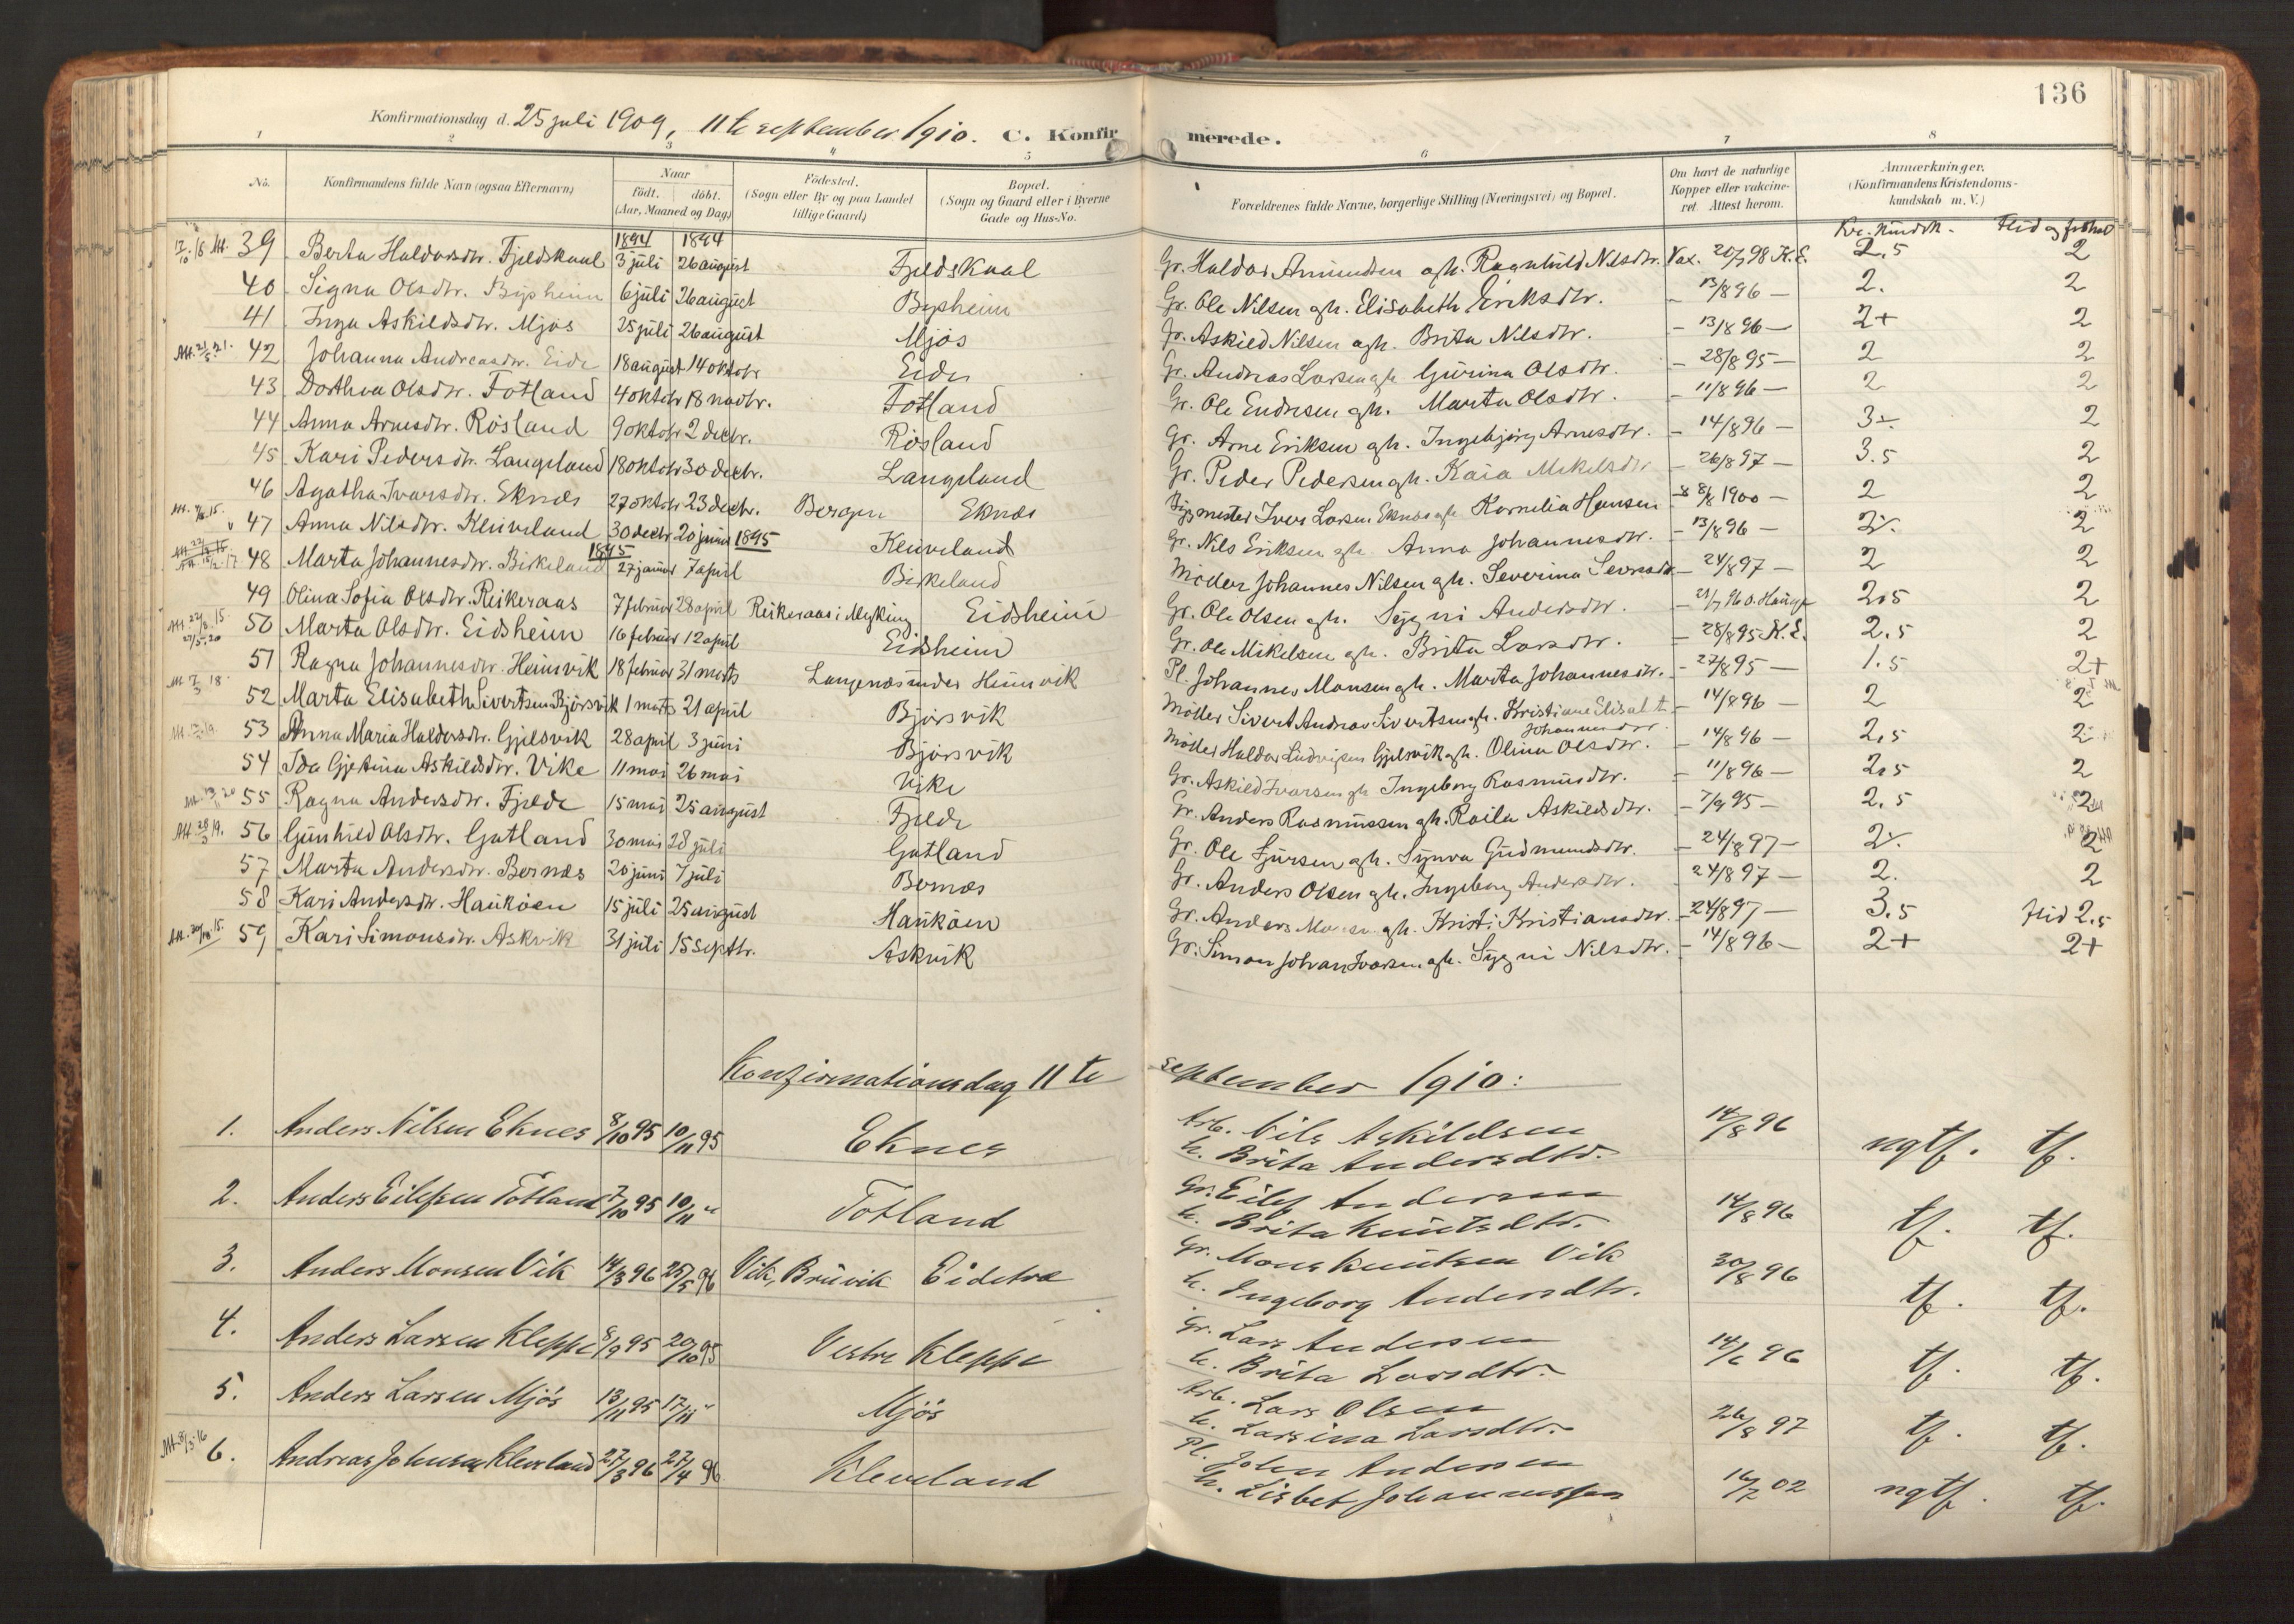 136
Konfirmationsdag d. 25 juli 1909, 11te september 1910. C. Konfirmerede.
1 2 3 4 5 6 7 8
No. Konfirmandens fulde Navn (ogsaa Efternavn) Naar født. døbt. (Aar, Maaned og Dag) Fødested. (Sogn eller By og paa Landet tillige Gaard) Bopæl. (Sogn og Gaard eller i Byerne Gade og Hus-No. Forældrenes fulde Navne, borgerlige Stilling (Næringsvei) og Bopæl. Om havt de naturlige Kopper eller vakcineret. Attest herom. Anmærkninger. (Konfirmandens Kristendomskundskab m. V.)
Kr. kundsk. Flid og forhold
1894 1894
39 Berta Haldorsdtr. Fjeldskaal 3 juli 26 august Fjeldskaal Gr. Haldor Amundsen og h. Ragnhild Nilsdtr. Vax. 20/7 98 K.E. 2.5 2
40 Signa Olsdtr. Bysheim 6 juli 26 august Bysheim Gr. Ole Nilsen og h. Elisabeth Eriksdtr. – 13/8 96 – 2. 2
41 Inga Askildsdtr. Mjøs 25 juli 26 august Mjøs Gr. Askild Nilsen og h. Brita Nilsdtr. – 13/8 96 – 2+ 2
Att. 21/5 21. 42 Johanna Andreasdtr. Eide 18 august 14 oktobr Eide Gr. Andreas Larsen og h. Gurina Olsdtr. – 28/8 95 – 2 2
43 Dorthea Olsdtr. Totland 4 oktobr 18 novbr. Totland Gr. Ole Endresen og h. Marita Olsdtr. – 11/8 96 – 2 2
44 Anna Arnesdtr. Røsland 9 oktobr 2 decbr. Røsland Gr. Arne Eriksen og h. Ingebjørg Arnesdtr. – 14/8 96 – 3÷ 2
45 Kari Pedersdtr. Langeland 18 oktobr 30 decbr. Langeland Gr. Peder Pedersen og h. Kaia Mikelsdtr – 26/8 97 – 3.5 2
46 Agatha Ivarsdtr. Eknæs 27 oktobr 23 decbr. Bergen Eknæs Bygmester Iver Larsen Eknæs og h. Kornelia Hansen 8/8 1900 – 2 2
47 Anna Nilsdtr. Kleiveland 30 decbr 20 januar 1895 Kleiveland Gr. Nils Eriksen og h. Anna Johannesdtr. – 13/8 96 – 2÷ 2
1895
48 Marta Johannesdtr. Birkeland 27 januar 7 april Birkeland Møller Johannes Nilsen og h. Severina – 24/8 97 – 2 2
49 Olina Sofia Olsdtr. Reikeraas 7 februar 28 april Reikeraas i Myking Eidsheim Gr. Ole Olsen og h. Sygni Andersdtr. – 21/7 96 O. Hauge 2.5 2
50 Marta Olsdtr. Eidsheim 16 februar 12 april Eidsheim Gr. Ole Mikelsen og h. Brita Larsdtr. – 28/8 95 K.E. 2.5 2
51 Ragna Johannesdtr. Heimvik 18 februar 31 marts Langenæs under Heimvik Pl. Johannes Monsen og h. Marta Johannesdtr. – 27/8 95 – 1.5 2+
52 Marta Elisabeth Sivertsen Bjørsvik 1 marts 21 april Bjørsvik Møller Sivert Andreas Sivertsen og h. Kristiane Elisabet Johannesdtr. – 14/8 96 – 2 2
53 Anna Maria Haldorsdtr. Gjelsvik 28 april 3 juni Bjørsvik Møller Haldor Ludvigsen Gjelsvik og h. Olina Olsdtr. – 14/8 96 – 2.5 2
54 Ida Gjertina Askildsdtr. Vike 11 mai 26 mai Vike Gr. Askild Ivarsen og h. Ingeborg Rasmusdtr. – 11/8 96 – 2.5 2
55 Ragna Andersdtr. Fjelde 15 mai 25 august Fjelde Gr. Anders Rasmussen og h. Raila Askildsdtr. – 7/9 95 – 2.5 2
Att. 28/3 19. 56 Gunhild Olsdtr. Gatland 30 mai 28 juli Gatland Gr. Ole Sjursen og h. Synva Gudmundsdtr. – 24/8 97 – 2÷ 2
57 Marta Andersdtr. Bernæs 20 juni 7 juli Bernæs Gr. Anders Olsen og h. Ingeborg Andersdtr. 24/8 97 – 2. 2
58 Kari Andersdtr. Haukåen 15 juli 25 august Haukåen Gr. Anders og h. Kristi Kristiansdtr. – 24/8 97 – 3.5 flid 2.5
59 Kari Simonsdtr. Askvik 31 juli 15 septbr. Askvik Gr. Simon Johan Ivarsen og h. Sygni Nilsdtr. – 14/8 96 – 2+ 2+
Konfirmationsdag 11te september 1910:
1. Anders Nilsen Eknes 8/10 95 10/11 95 Eknes Arb. Nils Askildsen 14/8 96 ngtf. tf.
h. Brita Andersdtr.
2. Anders Eilefsen Totland 7/10 95 10/11 " Totland Gr. Eilef Andersen 14/8 96 tf. tf.
h. Brita Knutsdtr.
3. Anders Monsen Vik 14/3 96 25/5 96 Vik, Bruvik Eidetræ Gr. Mons Knutsen Vik 20/8 96 tf. tf.
h. Ingeborg Andersdtr.
4. Anders Larsen Kleppe 8/9 95 20/10 95 Vestre Kleppe Gr. Lars Andersen 14/6 96 tf. tf.
h. Brita Larsdtr.
5. Anders Larsen Mjøs 13/11 95 17/11 " Mjøs Arb. Lars Olsen 26/8 97 tf. tf.
h. Larsina Larsdtr.
Att. 8/3 16 6. Andreas Johnsen Kleveland 27/3 96 27/4 96 Kleveland Pl. John Andersen 16/7 02 ngtf. tf.
h. Lisbet Johannessen